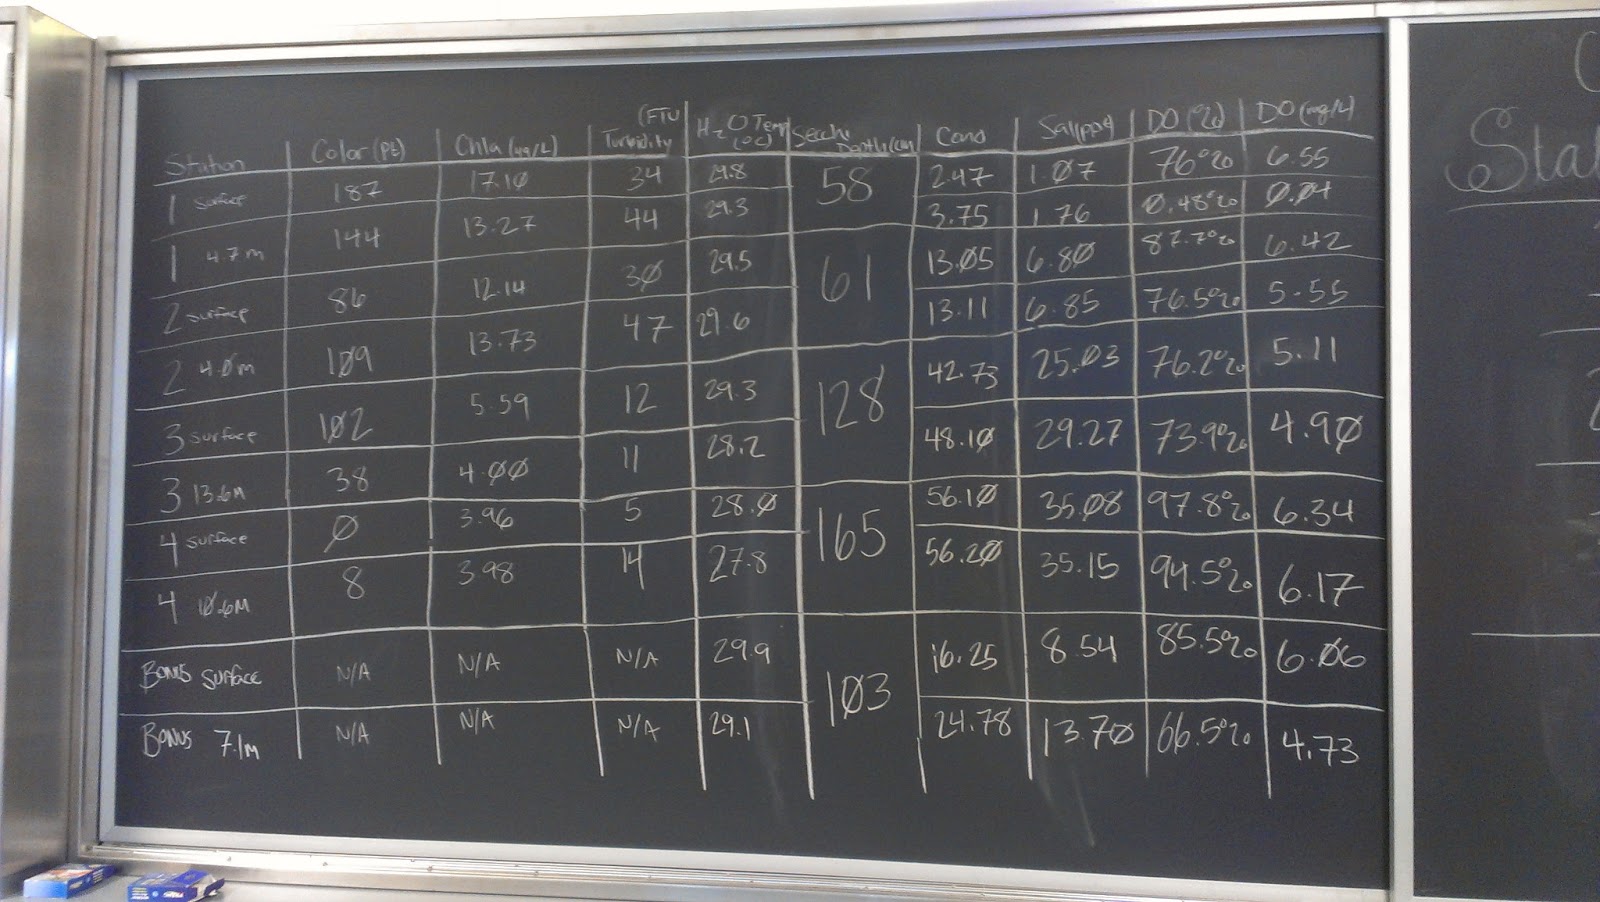 Station Color (Pt) Chla (ug/L) Turbidity (FTU H2O Temp (°C) Secchi Depth (cm Cond Sal (ppt) DO (%) DO (mg/L)
1 surface 187 17.10 34 29.8 58 2.47 1.07 76% 6.55
1 4.7m 144 13.27 44 29.3 3.75 1.76 0.48% 0.04
2 surface 86 12.14 30 29.5 61 13.05 6.80 87.7% 6.42
2 4.0m 109 13.73 47 29.6 13.11 6.85 76.5% 5.55
3 surface 102 5.59 12 29.3 128 42.73 25.03 76.2% 5.11
3 13.6M 38 4.00 11 28.2 48.10 29.27 73.9% 4.90
4 surface 0 3.96 5 28.0 165 56.10 35.08 97.8% 6.34
4 10.6M 8 3.98 14 27.8 56.20 35.15 94.5% 6.17
Bonus surface N/A N/A N/A 29.9 103 16.25 8.54 85.5% 6.06
Bonus 7.1m N/A N/A N/A 29.1 24.78 13.70 66.5% 4.73